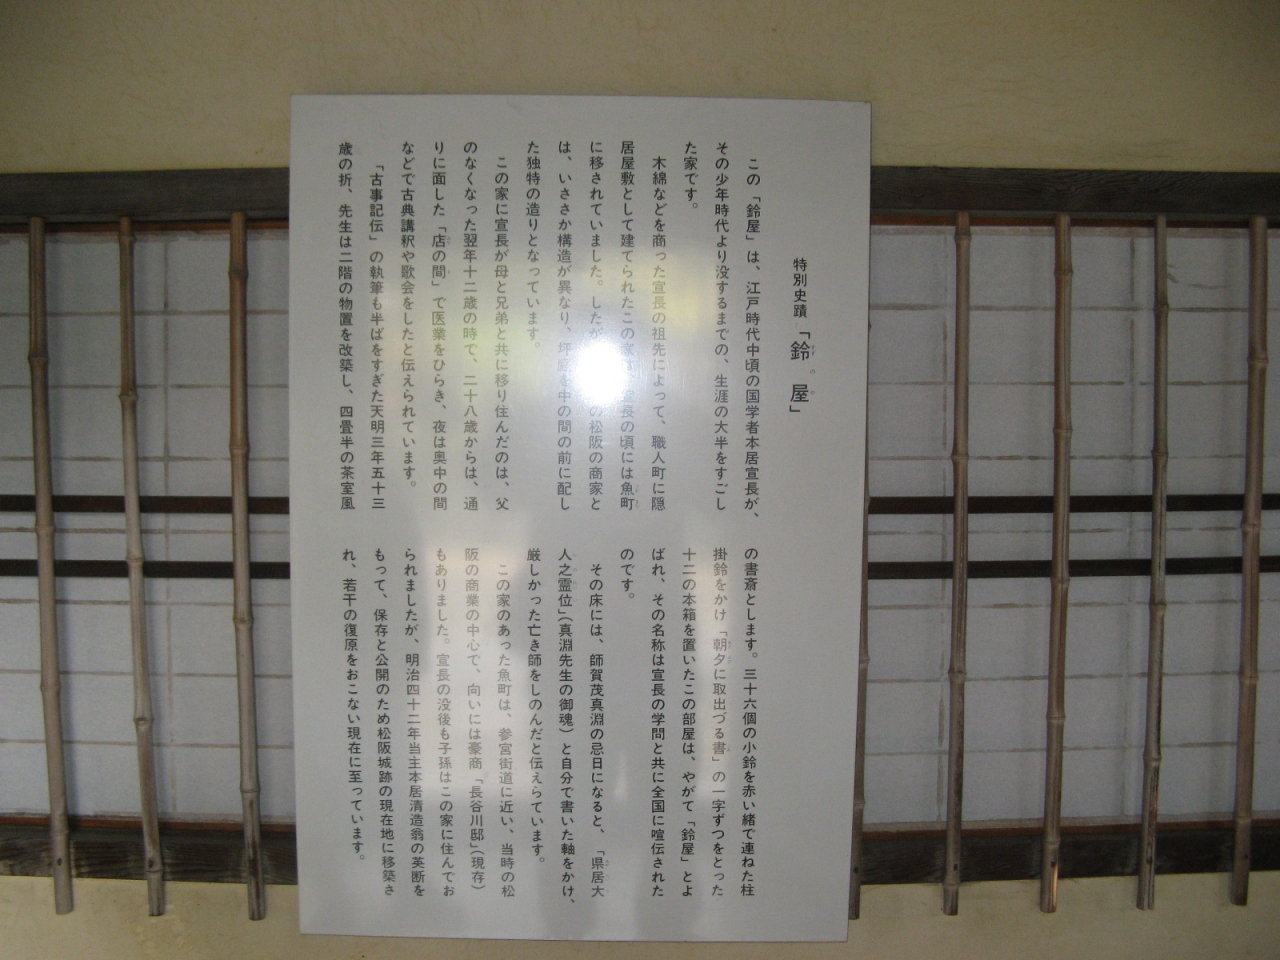 特別史蹟「鈴屋」
この「鈴屋」は、江戸時代中頃の国学者本居宣長が、
その少年時代より没するまでの、生涯の大半をすごし
た家です。
木綿などを商った宣長の祖先によって、職人町に隠
居屋敷として建てられたこの家は、宣長の頃には魚町
に移されていました。したが の松阪の商家と
は、いささか構造が異なり、坪庭を中の間の前に配し
た独特の造りとなっています。
この家に宣長が母と兄弟と共に移り住んだのは、父
のなくなった翌年十二歳の時て、二十八歳からは、通
りに面した「店の間」で医業をひらき、夜は奥中の間
などで古典講釈や歌会をしたと伝えられています。
「古事記伝」の執筆も半ばをすぎた天明三年五十三
歳の折、先生は二階の物置を改築し、四畳半の茶室風
の書斎とします。三十六個の小鈴を赤い緒で連ねた柱
掛鈴をかけ「朝夕に取出づる書」の一字ずつをとった
十二の本箱を置いたこの部屋は、やがて「鈴屋」とよ
ばれ、その名称は宣長の学問と共に全国に喧伝された
のです。
その床には、師賀茂真淵の忌日になると、「県居大
人之霊位」(真淵先生の御魂)と自分で書いた軸をかけ、
厳しかった亡き師をしのんだと伝えらています。
この家のあった魚町は、参宮街道に近い、当時の松
阪の商業の中心で、向いには豪商「長谷川邸」(現存)
もありました。宣長の没後も子孫はこの家に住んでお
られましたが、明治四十二年当主本居清造翁の英断を
もって、保存と公開のため松阪城跡の現在地に移築さ
れ、若干の復原をおこない現在に至っています。